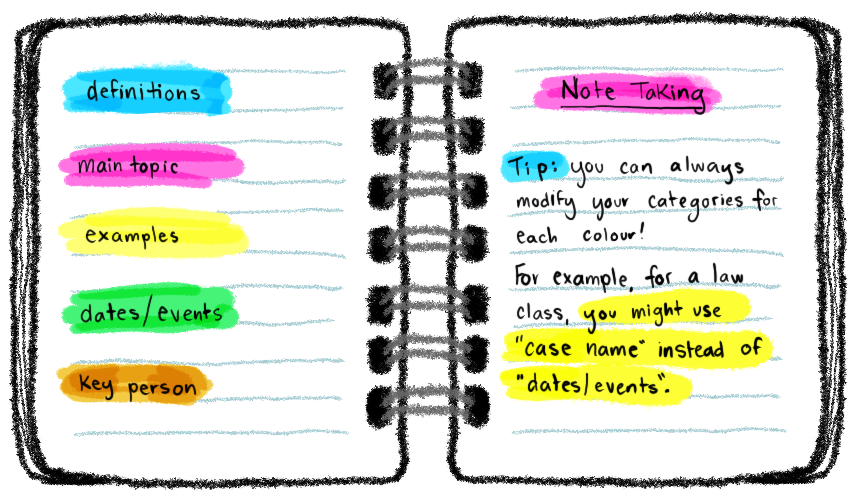 definitions
main topic
examples
dates/events
Key person
Note Taking
Tip: you can always
modify your categories for
each colour!
For example, for a law
class, you might use
"case name" instead of
"dates/events".